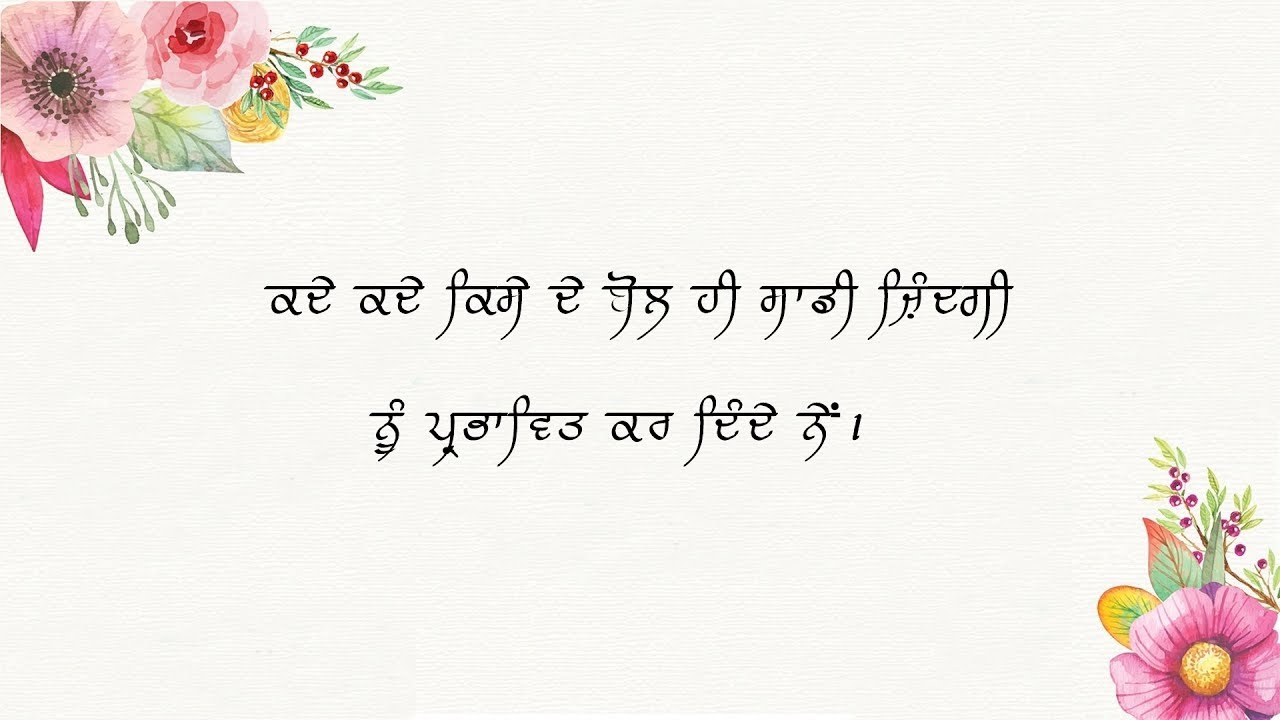 ਕਦੇ ਕਦੇ ਕਿਸੇ ਦੇ ਬੋਲ ਹੀ ਸਾਡੀ ਜ਼ਿੰਦਗੀ
ਨੂੰ ਪ੍ਰਭਾਵਿਤ ਕਰ ਦਿੰਦੇ ਨੇਂ।